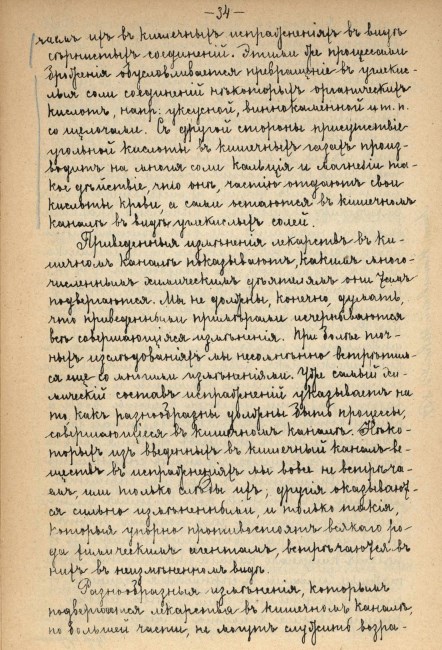 — 34 —
чаемъ ихъ въ кишечныхъ испражненіяхъ въ видѣ
сѣрнистыхъ соединеній. Этими же процессами
броженія обусловливается превращеніе въ углекис-
лыя соли соединеній нѣкоторыхъ органическихъ
кислотъ, напр: уксусной, виннокаменной и т. п.
со щелочами. Съ другой стороны присутствіе
угольной кислоты въ кишечныхъ газахъ произ-
водитъ на многія соли кальція и магнезіи та-
кое дѣйствіе, что онѣ, частію отдаютъ свои
кислоты крови, а сами остаются въ кишечномъ
каналѣ въ видѣ углекислыхъ солей.
Приведенныя измѣненія лекарствъ въ ки-
шечномъ каналѣ показываютъ, какимъ много-
численнымъ химическимъ дѣятелямъ они тамъ
подвергаются. Мы не должны, конечно, думать,
что приведенными примѣрами исчерпываются
всѣ совершающіяся измѣненія. При болѣе точ-
ныхъ изслѣдованіяхъ мы несомнѣнно встрѣтим-
ся еще со многими измѣненіями. Уже самый хи-
мическій составъ испражненій указываетъ на
то какъ разнообразны должны быть процессы,
совершающіеся въ кишечномъ каналѣ. Нѣко-
торыхъ изъ введенныхъ въ кишечный каналъ ве-
ществъ въ испражненіяхъ мы вовсе не встрѣча-
емъ, или только слѣды ихъ; другія оказывают-
ся сильно измѣненными, и только такія,
которыя упорно противостоятъ всякаго ро-
да химическимъ агентамъ, встрѣчаются въ
нихъ въ неизмѣненномъ видѣ.
Разнообразныя измѣненія, которымъ
подвергаются лекарства въ кишечномъ каналѣ,
по большей части, не могутъ служить возра-